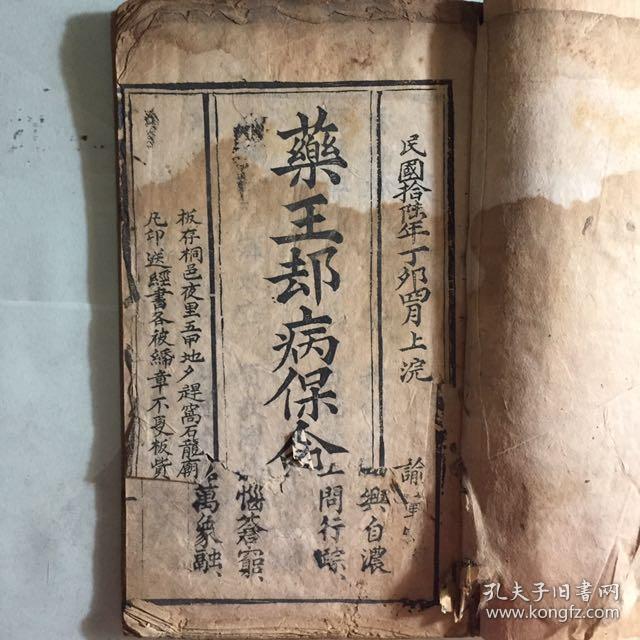 民國拾陸年丁卯四月上浣
藥王却病保命
板存桐邑夜里五甲地夕𧼮窩石龍廟
凡印送經書各被繙章不更板賞
諭
興自濃
問行踪
惱蒼窮
萬象融
孔夫子旧书网
www.kongfz.com